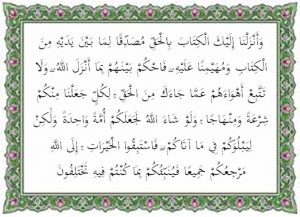 وَأَنْزَلْنَا إِلَيْكَ الْكِتَابَ بِالْحَقِّ مُصَدِّقًا لِمَا بَيْنَ يَدَيْهِ مِنَ
الْكِتَابِ وَمُهَيْمِنًا عَلَيْهِ فَاحْكُمْ بَيْنَهُمْ بِمَا أَنْزَلَ اللَّهُ وَلَا
تَتَّبِعْ أَهْوَاءَهُمْ عَمَّا جَاءَكَ مِنَ الْحَقِّ لِكُلٍّ جَعَلْنَا مِنْكُمْ
شِرْعَةً وَمِنْهَاجًا وَلَوْ شَاءَ اللَّهُ لَجَعَلَكُمْ أُمَّةً وَاحِدَةً وَلَكِنْ
لِيَبْلُوَكُمْ فِي مَا آتَاكُمْ فَاسْتَبِقُوا الْخَيْرَاتِ إِلَى اللَّهِ
مَرْجِعُكُمْ جَمِيعًا فَيُنَبِّئُكُمْ بِمَا كُنْتُمْ فِيهِ تَخْتَلِفُونَ